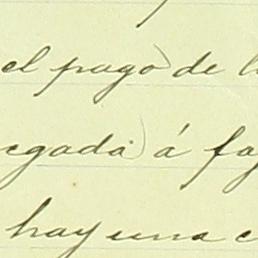 el pago de l
egada á fa
hay una c